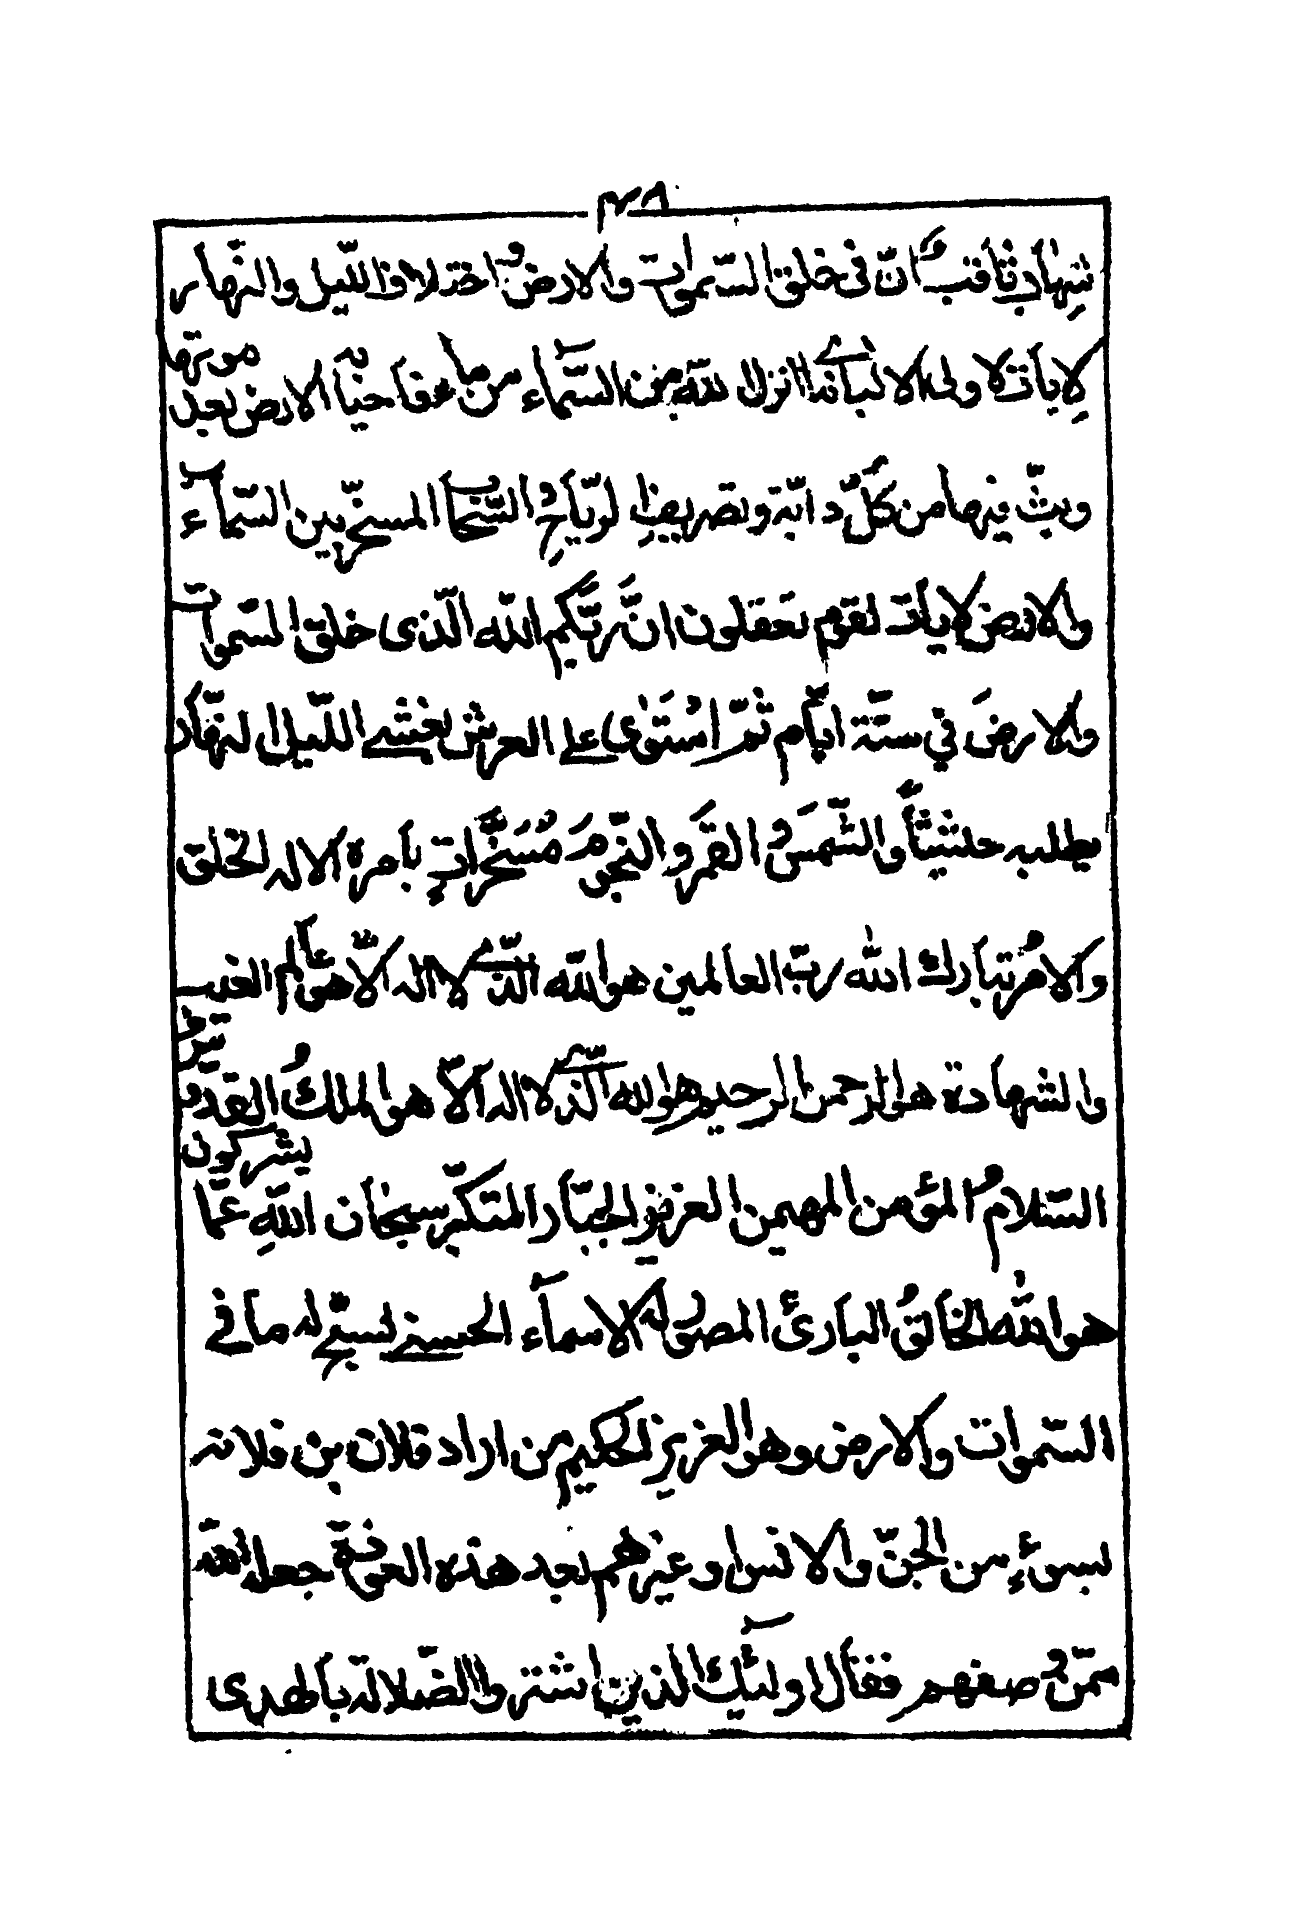 ٣٨
شهاب ثاقب ان في خلق السموات والارض واختلاف الليل والنهار
لايات لاولى الالباب ما انزل الله من السماء من ماء فاحيا به الارض بعد موتها
وبث فيها من كل دابة وتصريف الرياح والسحاب المسخر بين السماء
والارض لايات لقوم يعقلون ان ربكم الله الذى خلق السموات
والارض في ستة ايام ثم استوى على العرش يغشى الليل النهار
يطلبه حثيثا والشمس والقمر والنجوم مسخرات بامره الا له الخلق
والامر تبارك الله رب العالمين هو الله الذى لا اله الا هو عالم الغيب
والشهادة هو الرحمن الرحيم هو الله الذى لا اله الا هو الملك القدوس
السلام المؤمن المهيمن العزيز الجبار المتكبر سبحان الله عما يشركون
هو الله الخالق البارئ المصور له الاسماء الحسنى يسبح له ما في
السموات والارض وهو العزيز الحكيم من اراد فلان بن فلانه
بسوء من الجن والانس وغيرهم بعد هذه العوذة جعله الله
ممن وصفهم فقال اولئك الذين اشتروا الضلالة بالهدى